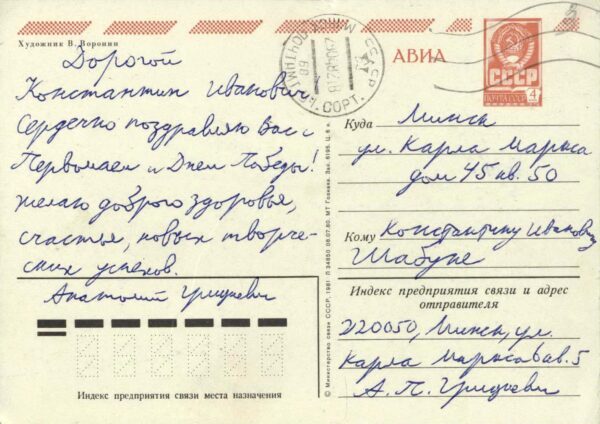 Художник В. Воронин
Дорогой
Константин Иванович
Сердечно поздравляю Вас с
Первомаем и Днем Победы!
желаю доброго здоровья,
счастья, новых творче-
ских успехов.
Анатолий Грицкевич
АВИА
СССР
4
Куда Минск
ул. Карла Маркса
дом 45 кв. 50
Кому Константину Ивановичу
Шабуне
Индекс предприятия связи и адрес
отправителя
220050, Минск, ул.
Карла Маркса 6 кв. 5
А. П. Грицкевич
Индекс предприятия связи места назначения
© Министерство связи СССР, 1981